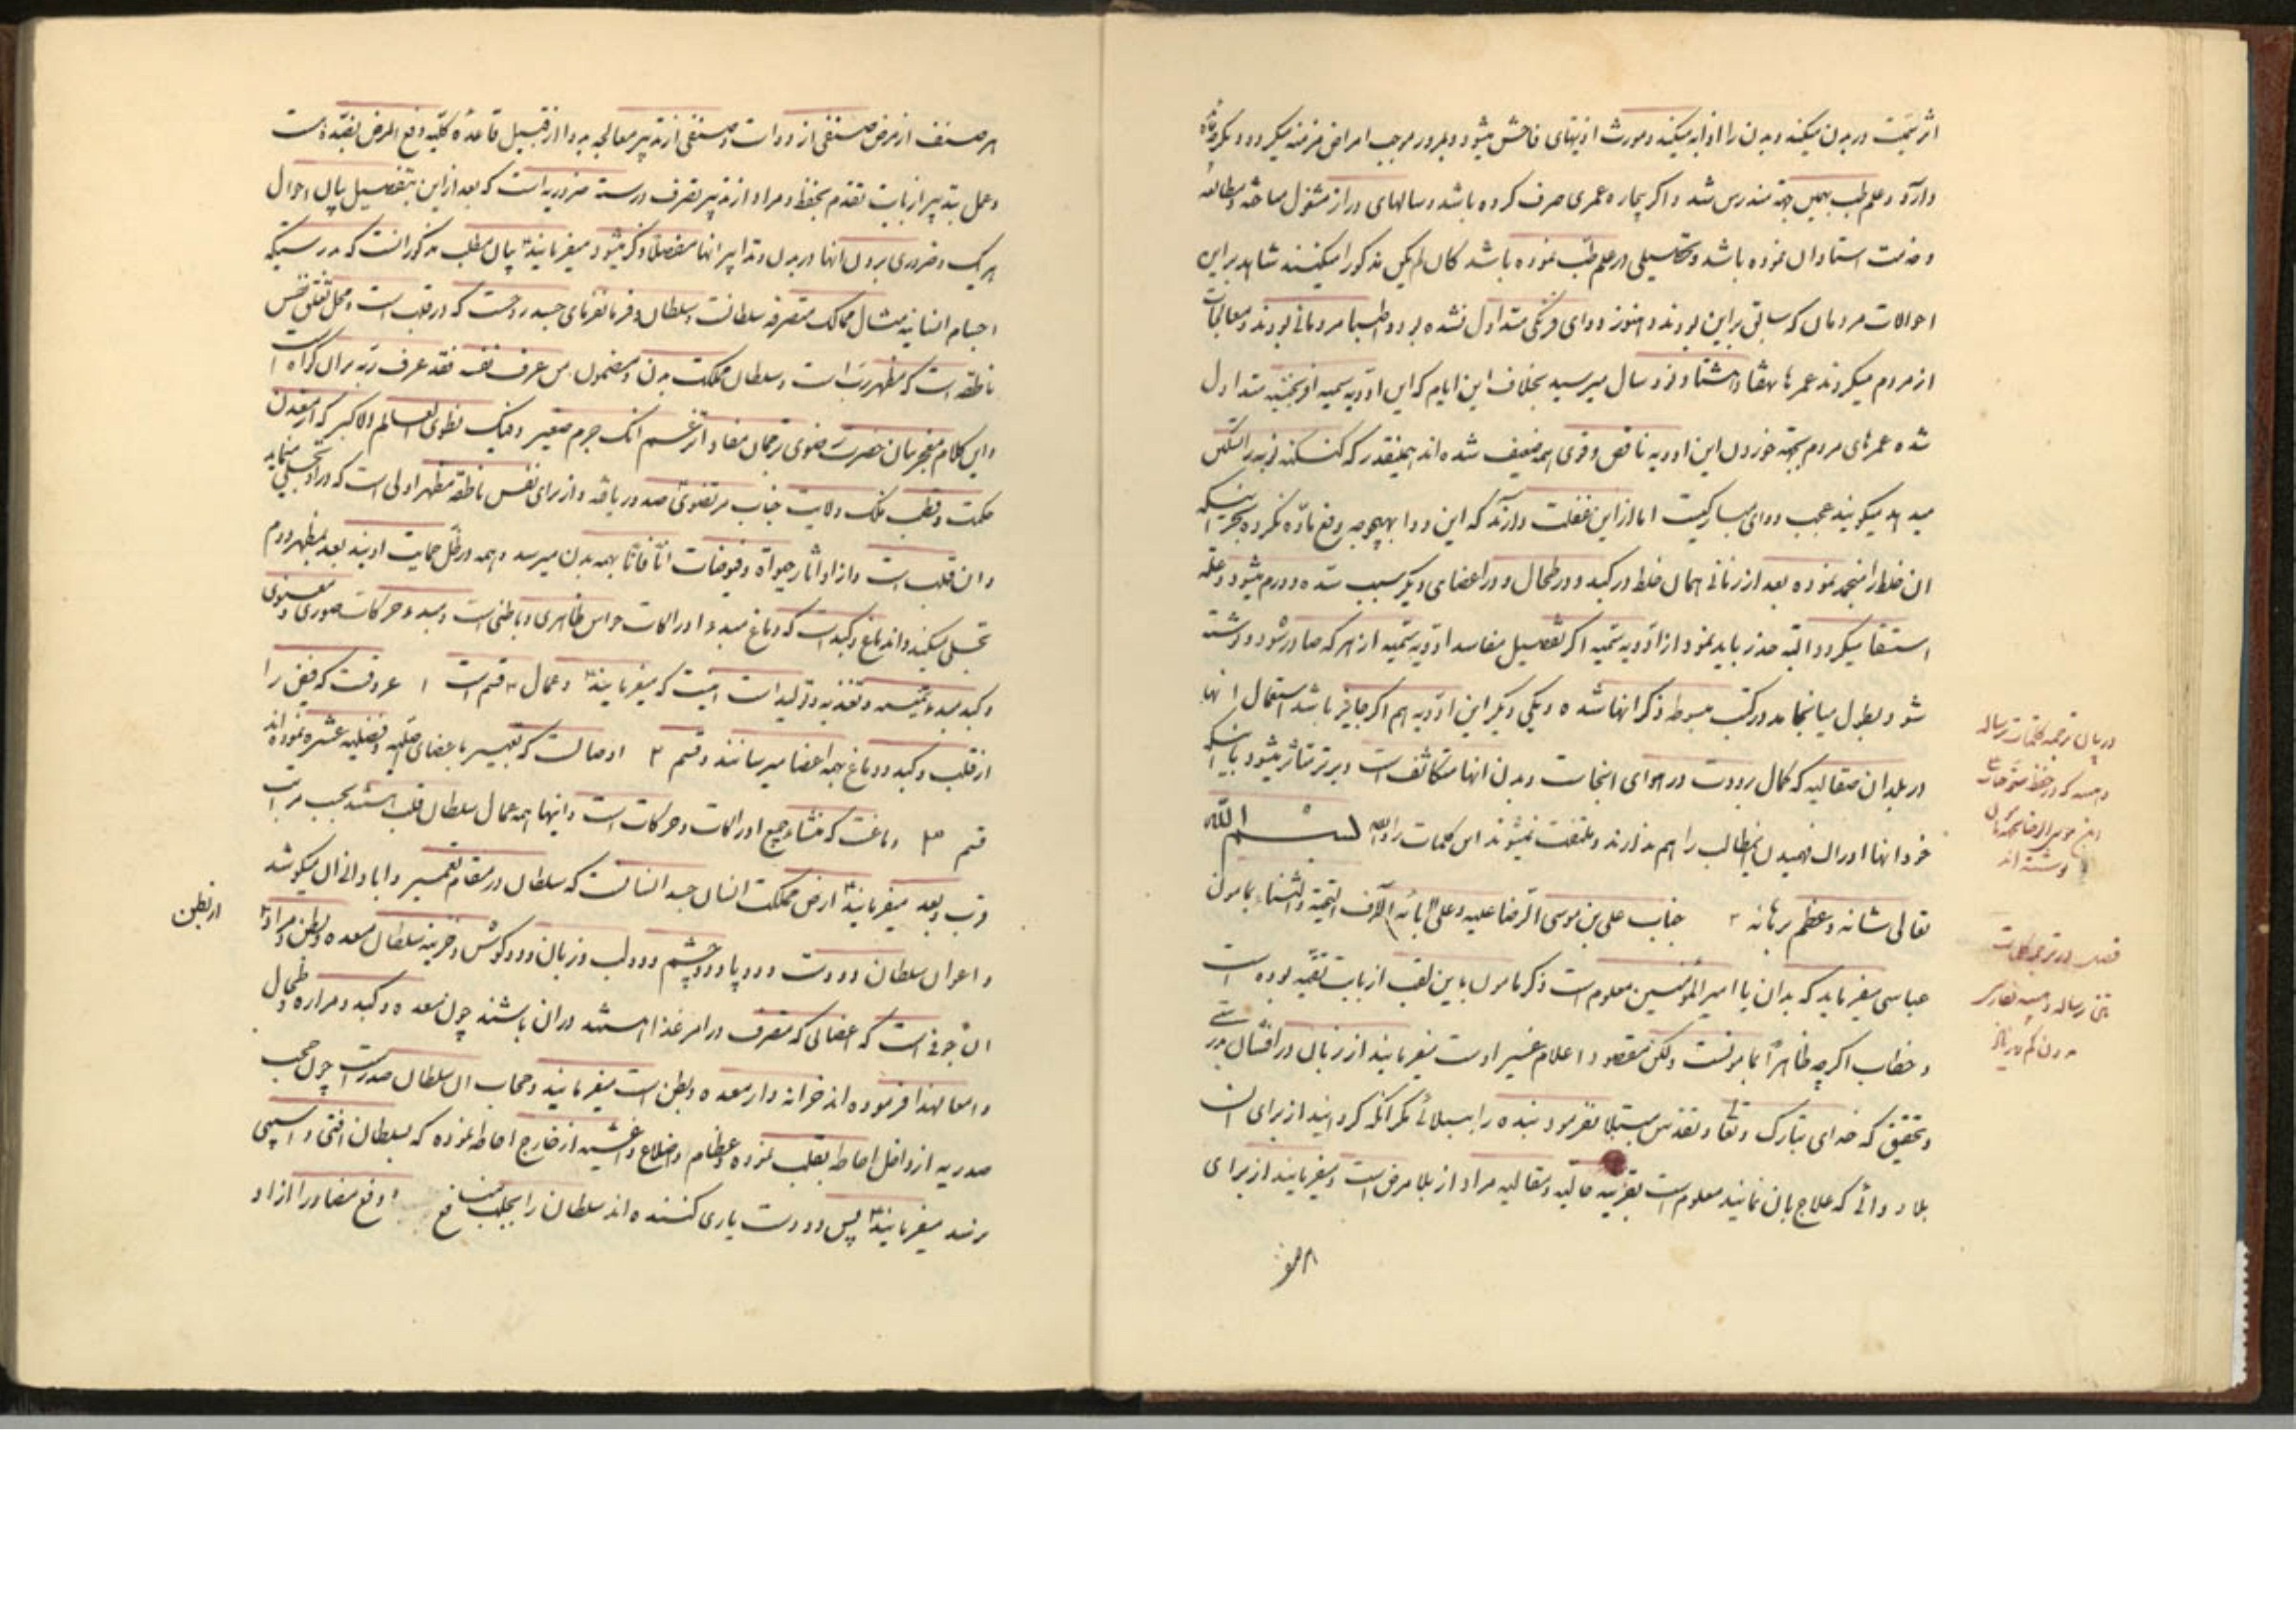 اثر سمیت در بدن میکند و بدن را اذابه میکند و مورث اذیتهای فاحش میشود و بمرور موجب امراض مزمنه میکردد و دیکر
دارد و علم طب بهمین جهة مندرس شد و اکر بیچاره عمری صرف کرده باشد و سالهای دراز مشغول مباحثه و مطالعه
و خدمت استادان نموده باشد و تحصیلی در علم طب نموده باشد کان لم یکن مذکورا میکنند شاهد بر این
احوالات مردمان که سابق بر این بودند و هنوز دوای فرنکی متداول نشده بود و اطبا مردمانی بودند و معالجات
از مردم میکردند عمرها بهفتاد و هشتاد و نود سال میرسید بخلاف این ایام که این ادویه سمیه افرنجیه متداول
شده عمرهای مردم بجهة خوردن این ادویه ناقص و قوی همه ضعیف شده اند همینقدر که کنه کنه نوبه را تسکین
میدهد میکویند عجب دوای مبارکیست اما از این غفلت دارند که این دوا بهیچوجه رفع ماده نکرده بجز اینکه
ان خلط را منجمد نموده بعد از زمانی همان خلط در کبد و در طحال و در اعضای دیکر سبب سده و ورم میشود و علة
استسقا میکردد البته حذر باید نمود از ادویه سمیه اکر تفصیل مفاسد ادویه سمیه از هر که صادر شود نوشته
شود بطول میانجامد در کتب مبسوطه ذکر انها شده و یکی دیکر این ادویه هم اکر جایز باشد استعمال انها
در بلدان صقالبه که کمال برودت در هوای انجاست و بدن انها متکاثف است دیرتر متاثر میشود با اینکه
خود انها اوران فهمیدن اینمطالب را هم ندارند و ملتفت نمیشوند این کلمات را والله بسم الله
تعالی شانه و عظم برهانه جناب علی بن موسی الرضا علیه و علی ابائه الاف التحیة و الثناء بمامون
عباسی میفرماید که بدان یا امیر المؤمنین معلوم است ذکر مامون باین لقب از بابت تقیه بوده است
و خطاب اکرچه ظاهرا بمامونست ولکن مقصود اعلام غیر اوست میفرمایند از زبان در افشان
و تحقیق که خدای تبارک و تعالی و تقدس مبتلا نفرمود بنده را ببلائی مکر انکه کردانید از برای ان
بلا دوائی که علاج بان نمایند معلوم است بقرینه حالیه و مقالیه مراد از بلا مرض است و میفرمایند از برای
در بیان ترجمه کلمات رساله
فصل در ترجمه کلمات
هر صنف از مرض صنفی از دوا است و صنفی از تدبیر معالجه و دوا از قبیل قاعده کلیه دفع المرض بضده است
و عمل بتدبیر از بابت تقدم بحفظ و مراد از تدبیر تصرف در سته ضروریه است که بعد از این بتفصیل بیان احوال
هر یک و ضروری بودن انها در بدن و تدابیر انها مفصلا ذکر میشود میفرمایند بیان مطلب مذکور انست که بدرستیکه
اجسام انسانیه مثال ممالک متصرفه سلطانست و سلطان و فرمانفرمای جسد روحست که در قلب است و محل تعلق نفس
ناطقه است که مظهر رب است و سلطان مملکت بدن و مضمون من عرف نفسه فقد عرف ربه بران کواه است
و این کلام معجز بیان حضرت رضوی ترجمان مفاد اتزعم انک جرم صغیر و فیک انطوی العالم الاکبر که از معدن
حکمت و قطب فلک ولایت جناب مرتضوی صدور یافته و از برای نفس ناطقه مظهر اولی است که در او تجلی مینماید
و ان قلب است و از او اثار حیوة و فیوضات انا فانا بهمه بدن میرسد و همه در ظل حمایت اویند بعد بمظهر دوم
تجلی میکند و اندماغ و کبد است که دماغ مبدء ادراکات حواس ظاهری و باطنی است و مبدء حرکات صوری و معنوی
و کبد مبدء تنمیه و تغذیه و تولید است اینست که میفرمایند و عمال ۳ قسم است ۱ عروقست که فیض را
از قلب و کبد و دماغ بهمه اعضا میرسانند و قسم ۲ اوصالست که تعبیر باعضای اصلیه و عضلیه عشره نموده اند
قسم ۳ دماغست که منشاء جمیع ادراکات و حرکات است و اینها همه عمال سلطان قلب هستند بحسب مراتب
قرب و بعد میفرمایند ارض مملکت انسان جسد انسانست که سلطان در مقام تعمیر و ابادانی ان میکوشد
و اعوان سلطان دو دست و دو پا و دو چشم و دو لب و زبان و دو کوش و خزینه سلطان معده و بطن و مراد
از بطن
ان جوفی است که اعضائی که متصرف در امر غذا هستند در ان باشند چون معده و کبد و مراره و طحال
و امعا لهذا فرموده اند خزانه دار معده و بطن است میفرمایند و حجاب ان سلطان صدر است چون حجب
صدریه از داخل احاطه بقلب نموده و عظام و اضلاع و اغشیه از خارج احاطه نموده که بسلطان افتی و اسیبی
نرسد میفرمایند پس دو دست یاری کننده اند سلطان را بجلب منافع و دفع مضار را از او